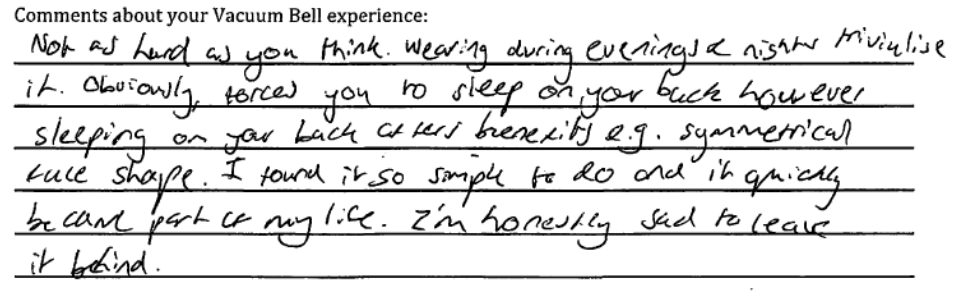 Comments about your Vacuum Bell experience:
Not as hard as you think. Wearing during evenings & nights trivialise
it. Obviously, forces you to sleep on your back however
sleeping on your back offers benefits e.g. symmetrical
face shape. I found it so simple to do and it quickly
became part of my life. I'm honestly sad to leave
it behind.